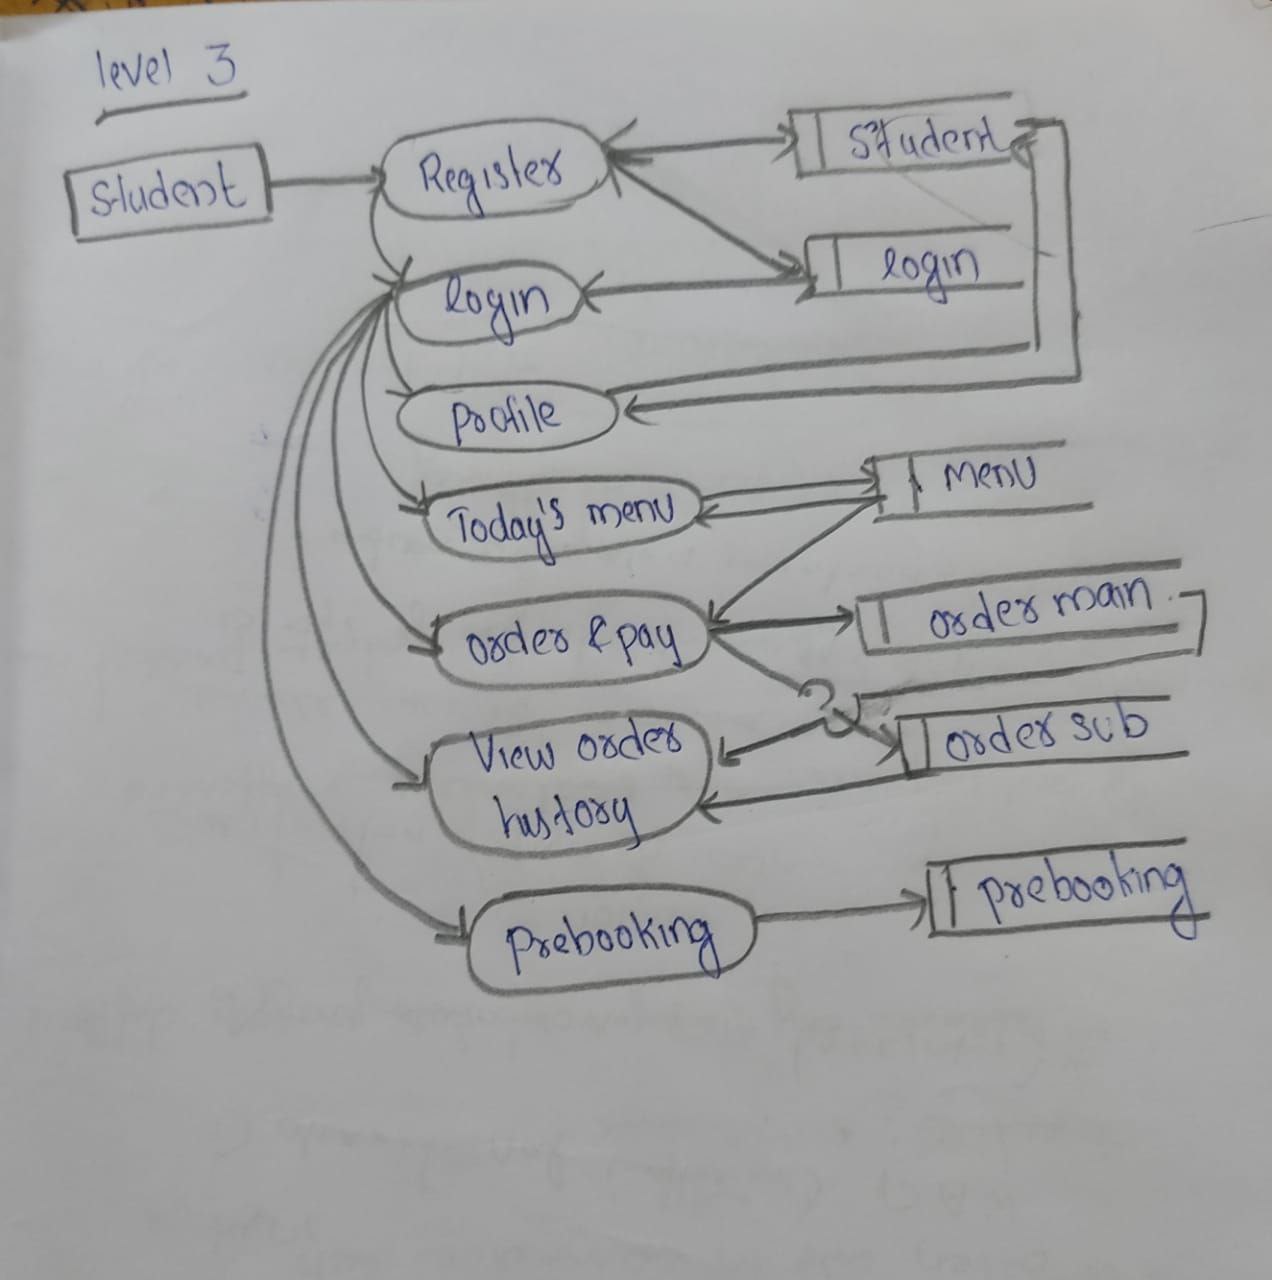 level 3
Student
Register
Student
login
login
profile
Today's menu
Menu
order & pay
order main
View order
history
order sub
prebooking
prebooking